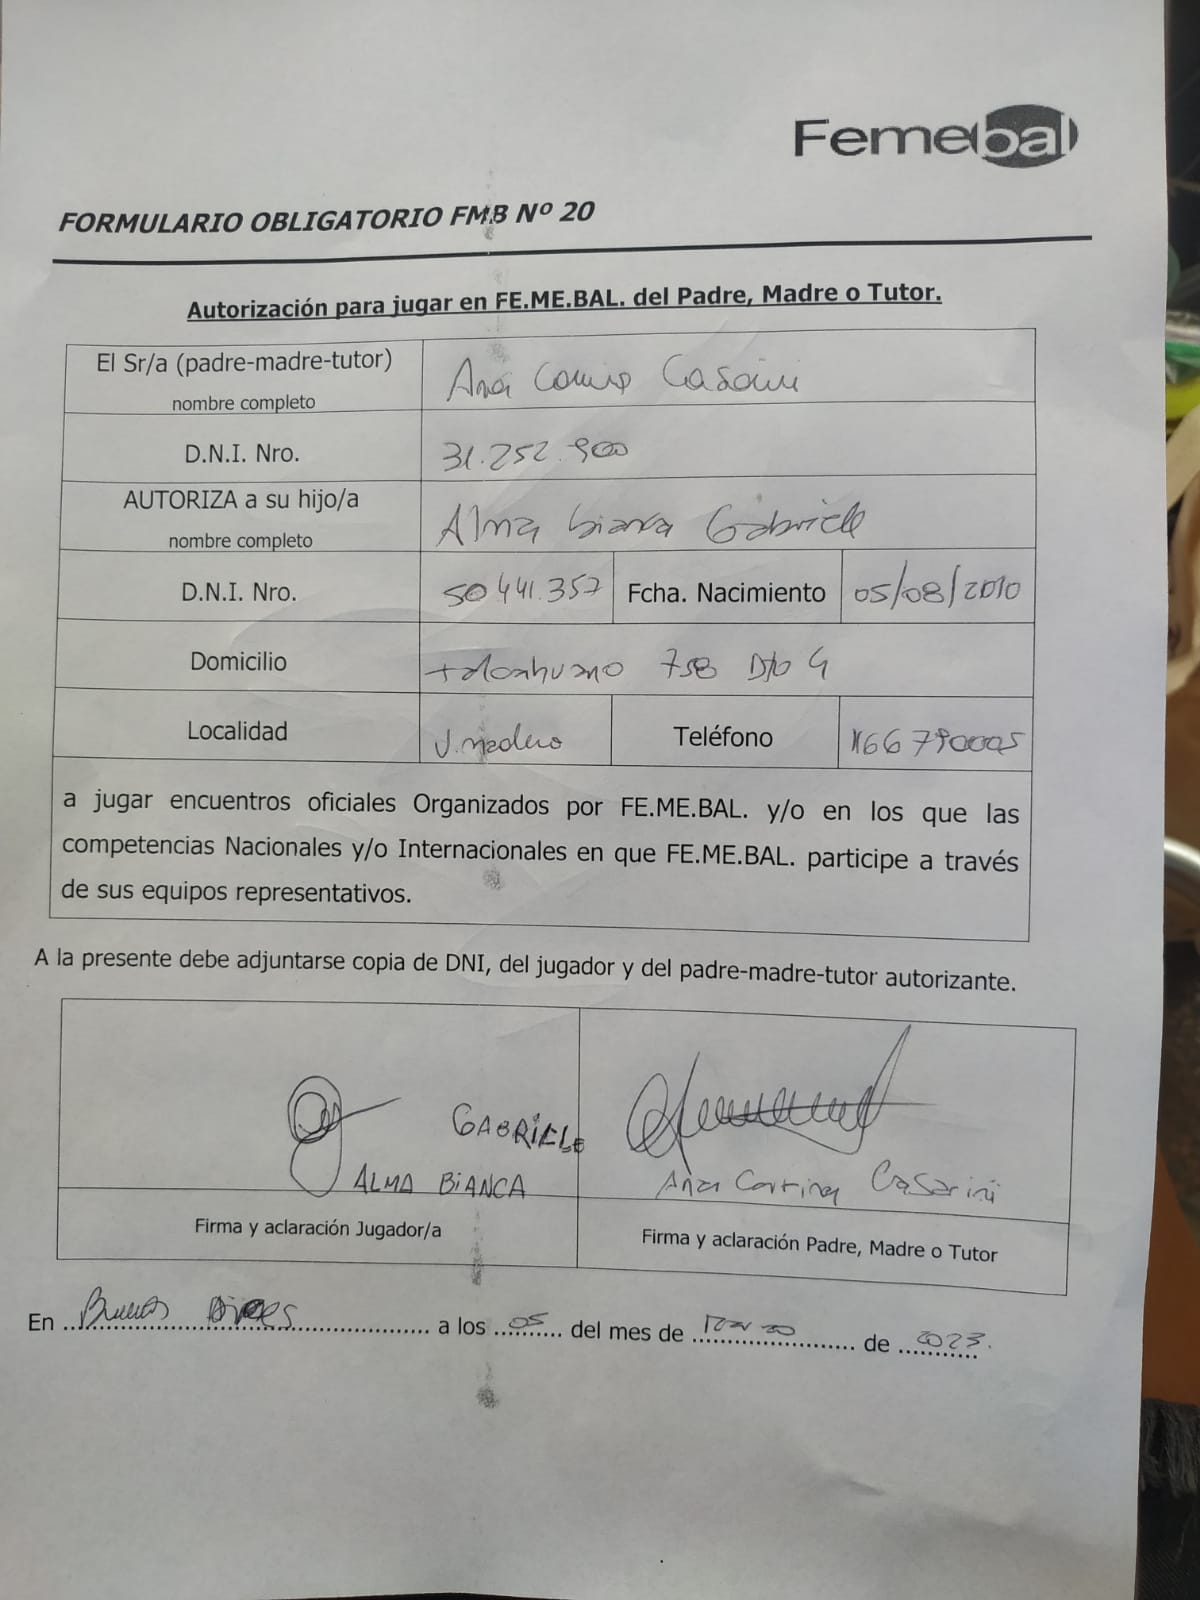 Femebal
FORMULARIO OBLIGATORIO FMB Nº 20
Autorización para jugar en FE.ME.BAL. del Padre, Madre o Tutor.
El Sr/a (padre-madre-tutor)
nombre completo
Ana Casarini
D.N.I. Nro.
31.252.900
AUTORIZA a su hijo/a
nombre completo
Alma bianca Gabriele
D.N.I. Nro.
50441.357
Fcha. Nacimiento
05/08/2010
Domicilio
talcahuano 758 Dto 4
Localidad
V. madero
Teléfono
1166790005
a jugar encuentros oficiales Organizados por FE.ME.BAL. y/o en los que las
competencias Nacionales y/o Internacionales en que FE.ME.BAL. participe a través
de sus equipos representativos.
A la presente debe adjuntarse copia de DNI, del jugador y del padre-madre-tutor autorizante.
GABRIELE
ALMA BIANCA
Ana Casarini
Firma y aclaración Jugador/a
Firma y aclaración Padre, Madre o Tutor
En Buenos Aires a los 05 del mes de de 2023.